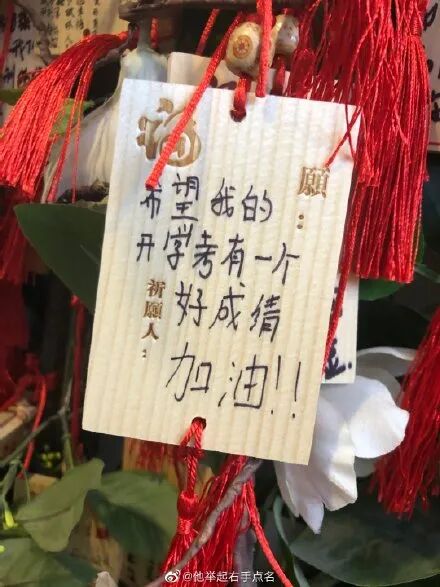 福
願:
希望我的
开学考有一个
好成绩
加油!!
祈願人:
@他举起右手点名